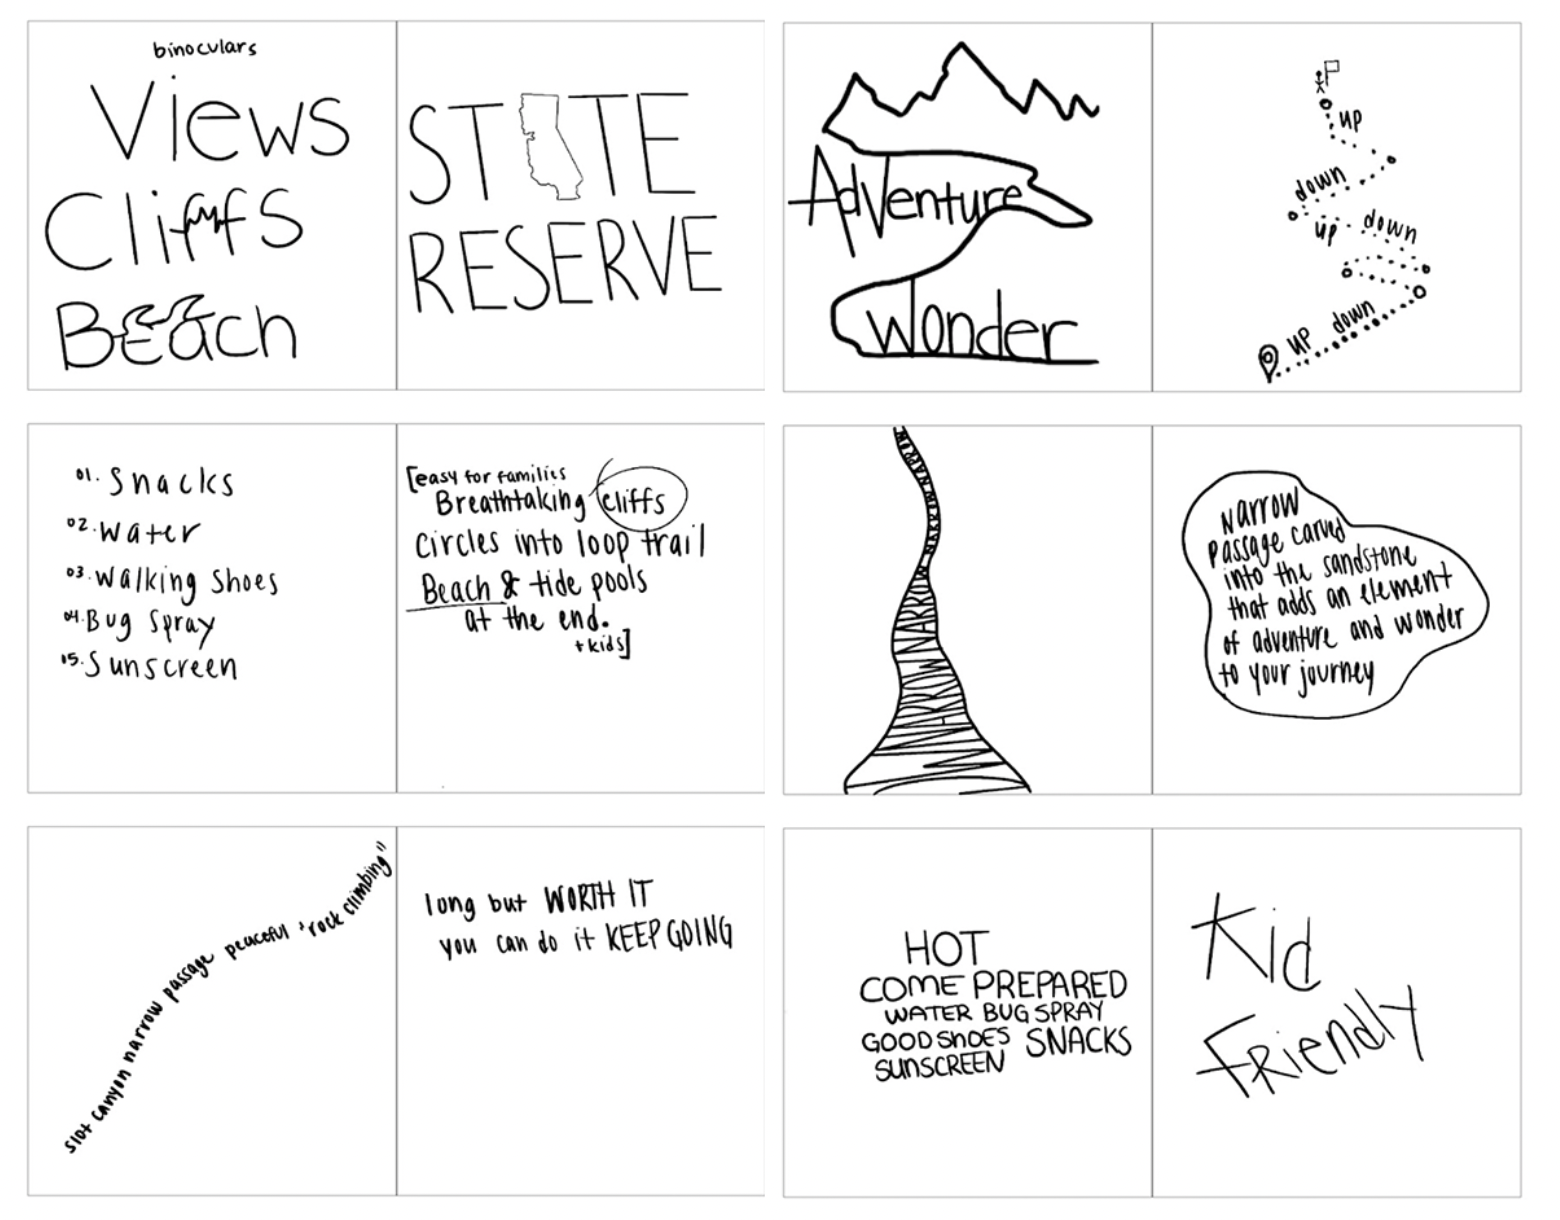 binoculars
Views
Cliffs
Beach
STTE
RESERVE
Adventure
Wonder
up
down
up down
up down
01. Snacks
02. Water
03. Walking Shoes
04. Bug Spray
05. Sunscreen
[easy for families
Breathtaking cliffs
Circles into loop trail
Beach & tide pools
at the end.
+ kids]
NARROW
NARROW
NARROW
NARROW
Narrow
passage carved
into the sandstone
that adds an element
of adventure and wonder
to your journey
slot canyon narrow passage peaceful "rock climbing"
long but WORTH IT
you can do it KEEP GOING
HOT
COME PREPARED
WATER BUG SPRAY
GOOD SHOES SNACKS
SUNSCREEN
Kid
Friendly